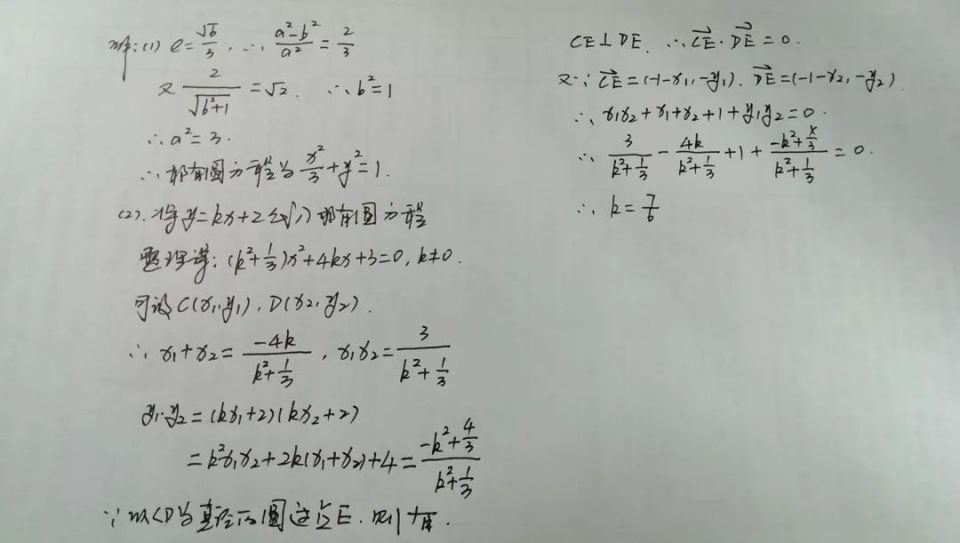 解:(1) e=√6/3, ∴ (a²-b²)/a²=2/3
又 2/√(b²+1)=√2. ∴ b²=1
∴ a²=3.
∴ 椭圆方程为 x²/3+y²=1.
(2). 将y=kx+2代入椭圆方程
整理得: (k²+1/3)x²+4kx+3=0, k≠0.
可设C(x₁,y₁), D(x₂,y₂).
∴ x₁+x₂=-4k/(k²+1/3), x₁x₂=3/(k²+1/3)
y₁·y₂=(kx₁+2)(kx₂+2)
=k²x₁x₂+2k(x₁+x₂)+4=(-k²+4/3)/(k²+1/3)
∵ 以CD为直径的圆过点E. 则有
CE⊥DE. ∴ CE→·DE→=0.
又∵ CE→=(-1-x₁,-y₁). DE→=(-1-x₂,-y₂)
∴ x₁x₂+x₁+x₂+1+y₁y₂=0.
∴ 3/(k²+1/3)-4k/(k²+1/3)+1+(-k²+4/3)/(k²+1/3)=0.
∴ k=7/6